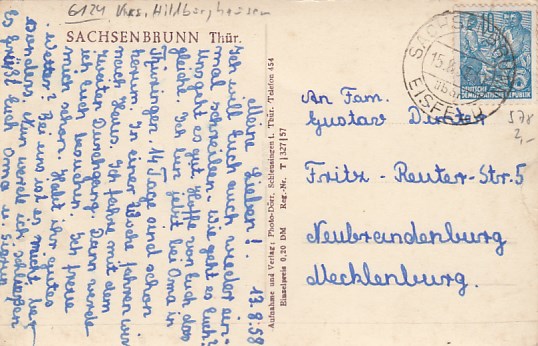 6124 Krs. Hildburghausen
SACHSENBRUNN Thür.
13.8.58
Meine Lieben!
Ich will Euch auch wieder ein-
mal schreiben. Wie geht es Euch?
Uns geht es gut, hoffe von Euch das
gleiche. Ich bin jetzt bei Oma in
Thüringen. 14 Tage sind schon
herum. In einer Woche fahren wir
nach Haus. Ich fahre mit dem
Durchgang. Dann werde
ich Euch besuchen. Ich freue
mich schon. Habt ihr gutes
Wetter? Bei uns ist es nicht be-
sonders. Nun werde ich schließen
Es grüßt Euch Oma u.
Aufnahme und Verlag: Photo-Dörr, Schleusingen i. Thür. Telefon 454
Einzelpreis 0,20 DM Reg.-Nr. T|327|57
15.8.
EISFELD
DEUTSCHE
DEMOKRATISCHE REPUBLIK
10
An Fam.
Gustav
Fritz-Reuter-Str. 5
Neubrandenburg
Mecklenburg.
578
2,-